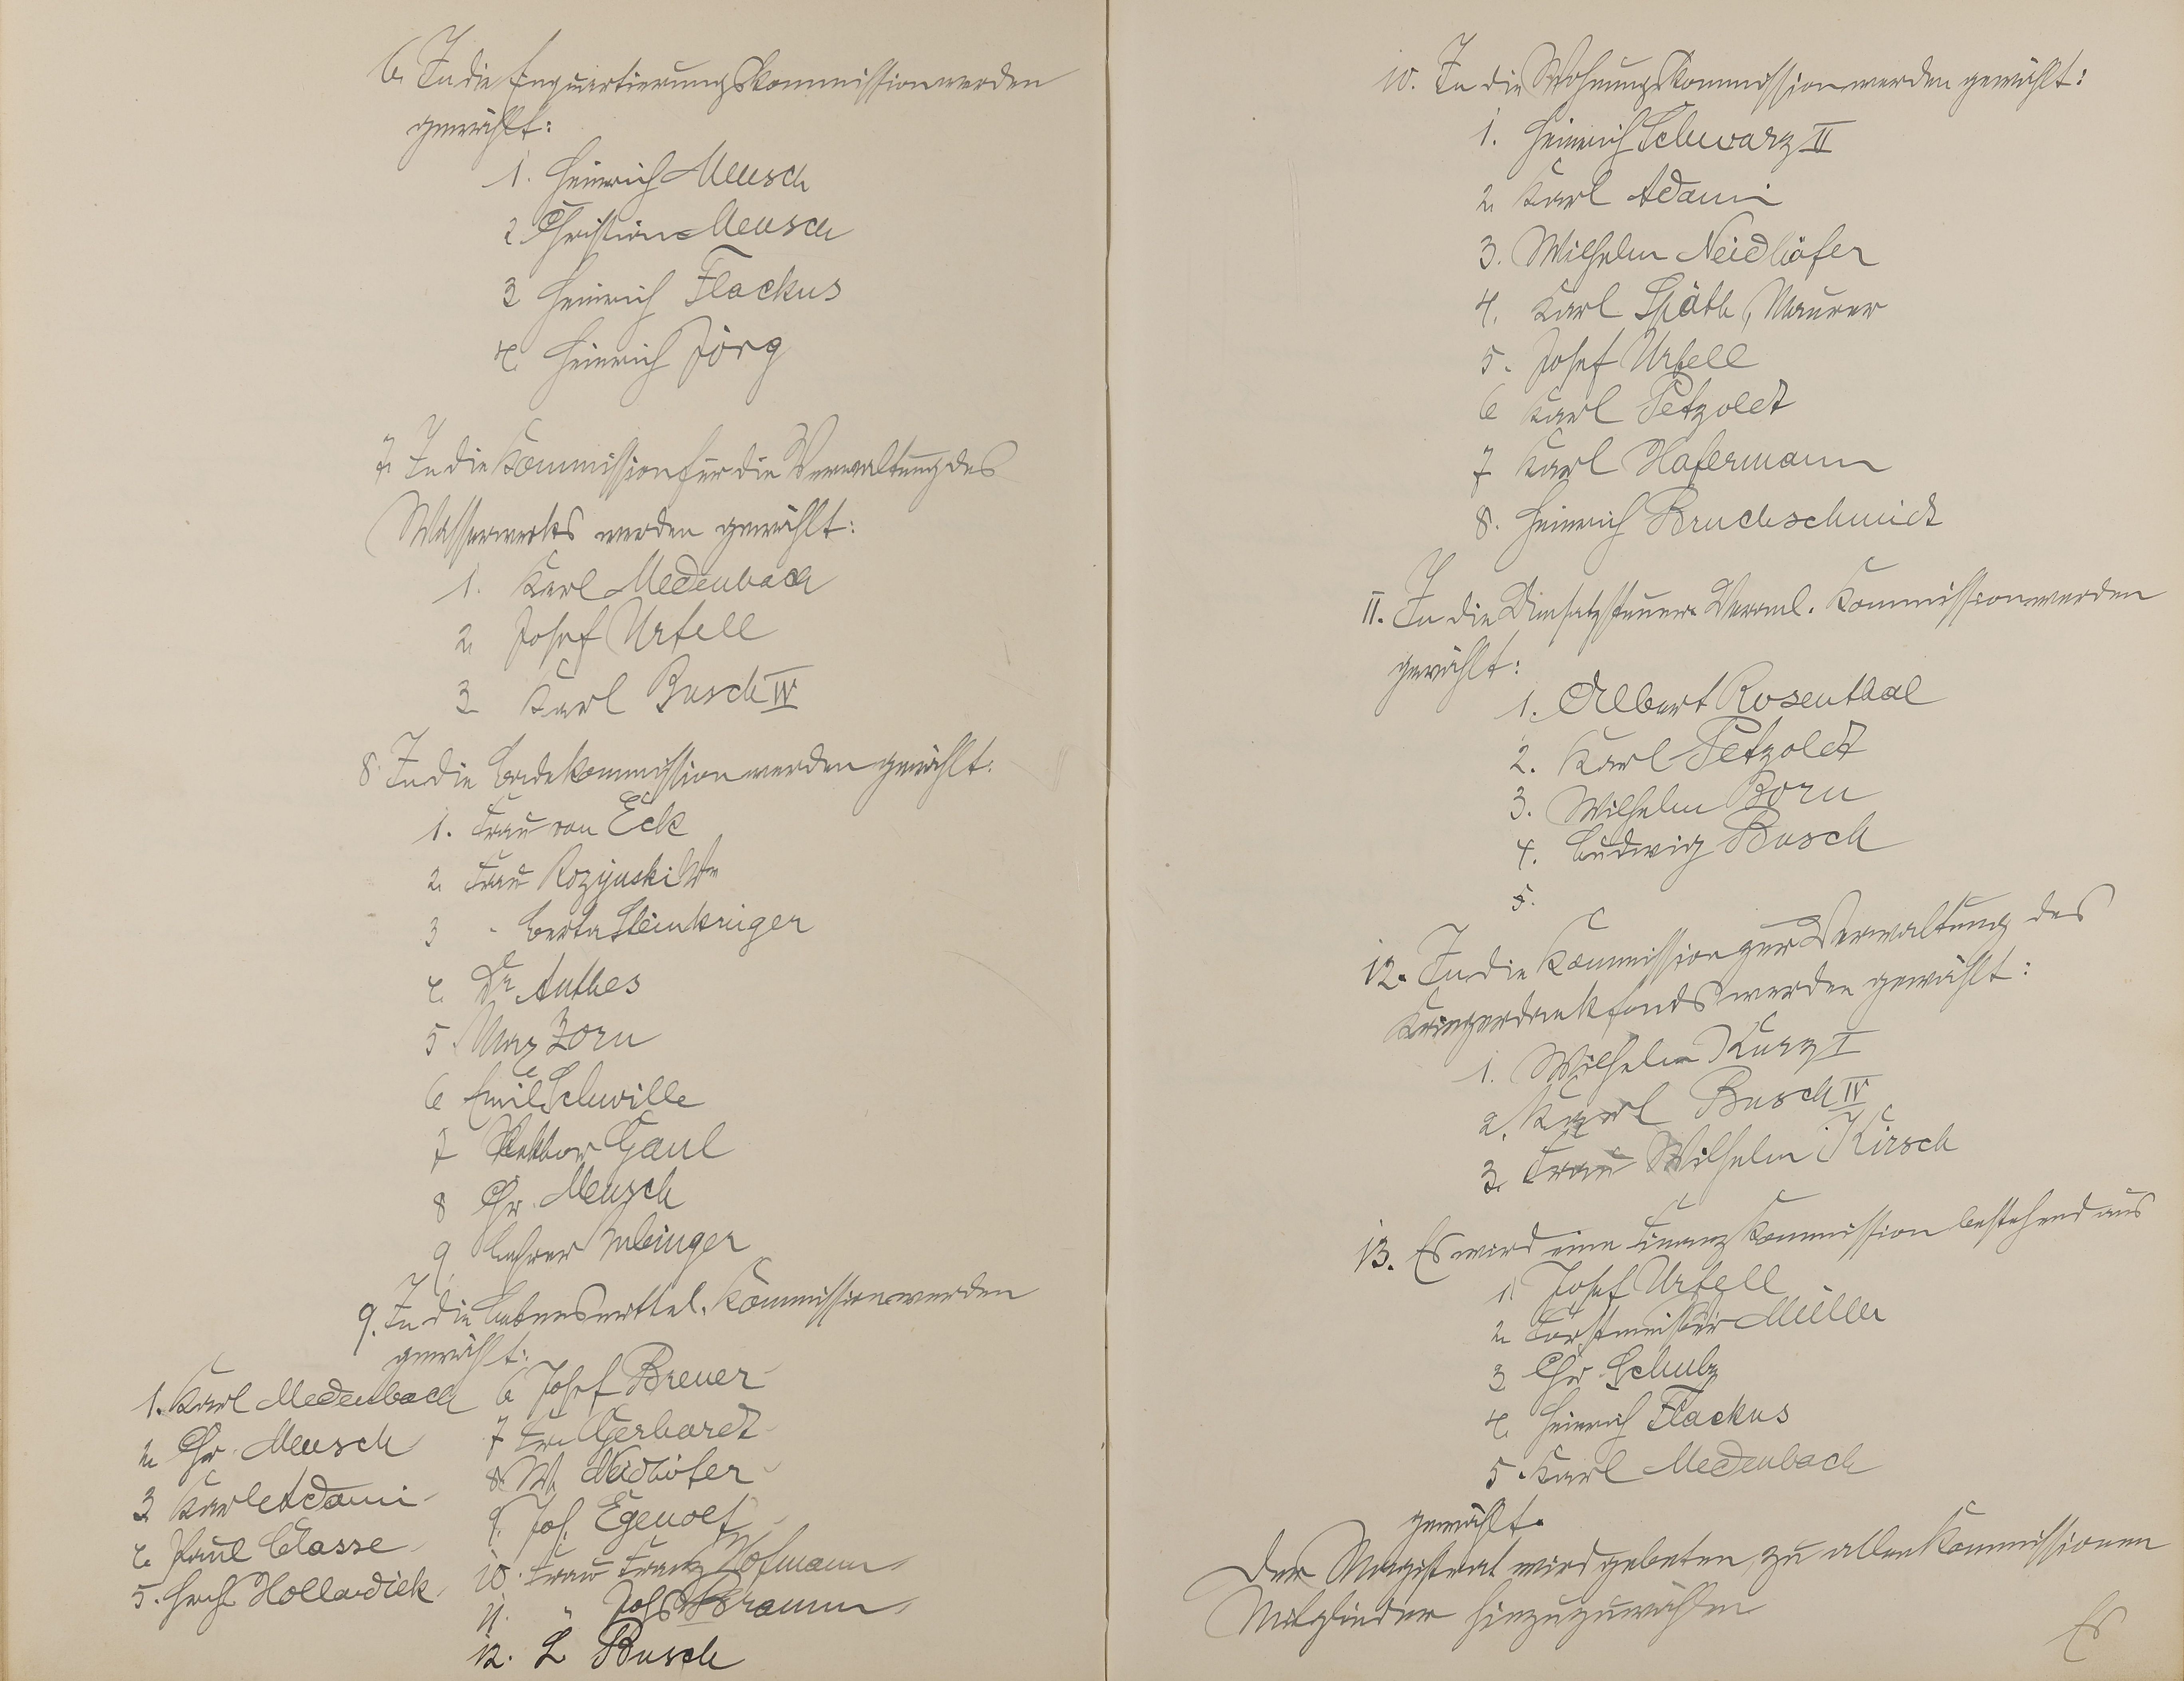 6. In die Einquartierungskommission werden
gewählt:
1. Heinrich Meusch
2 Christian Meusch
3 Heinrich Flackus
4. Heinrich Jörg
7. In die Kommission für die Verwaltung des
Wasserwerks werden gewählt:
1. Karl Medenbach
2. Josef Urfell
3 Karl Busch IV
8. In die Badekommission werden gewählt:
1. Frau von Eck
2. Frau Rozynski Ww
3 " Berta Steinkrüger
4. Dr. Anthes
5. Max Zorn
6 Emil Schwille
7 Rektor Gaul
8 Chr. Meusch
9 Lehrer
9. In die Lebensmittel-Kommission werden
gewählt:
1. Karl Medenbach
2. Chr. Meusch
3 Karl Adami
4. Paul Classe
5. Hch. Hollandiek
6 Josef Breuer
7 Fr. Gerhardt
8. W. Neidhöfer
9. Joh. Egenolf
10. Frau Franz Hofmann
11. " Johs Braum
12. L Busch
10. In die Wohnungskommission werden gewählt:
1. Heinrich Schwarz II
2. Karl Adami
3. Wilhelm Neidhöfer
4. Karl Späth, Maurer
5. Josef Urfell
6 Karl Petzoldt
7 Karl Hafermann
8. Heinrich Bruchschmidt
11. In die Umsatzsteuer-Veranl. Kommission werden
gewählt:
1. Albert Rosenthal
2. Karl Petzoldt
3. Wilhelm Born
4. Ludwig Busch
5.
12. In die Kommission zur Verwaltung des
Kriegerdankfonds werden gewählt:
1. Wilhelm Kurz I
2. Karl Busch IV
3. Frau Wilhelm Kirsch
13. Es wird eine Finanzkommission bestehend aus
1. Josef Urfell
2. Forstmeister Müller
3 Chr. Schulz
4. Heinrich Flackus
5. Karl Medenbach
gewählt.
Der Magistrat wird gebeten, zu allen Kommissionen
Mitglieder hinzuzuwählen
Es